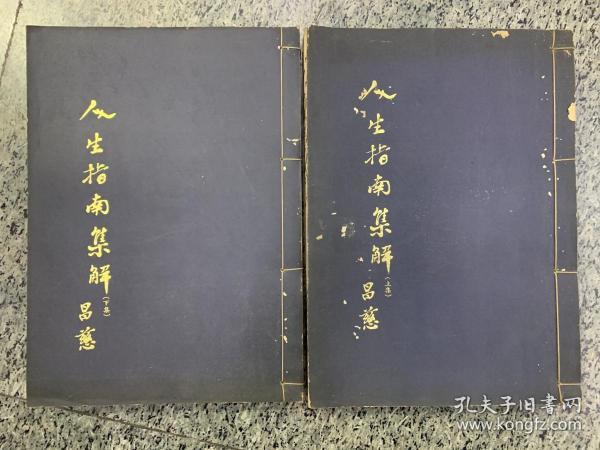 人生指南集解
(下集)
昌慈
人生指南集解
(上集)
昌慈
孔夫子旧书网
www.kongfz.com